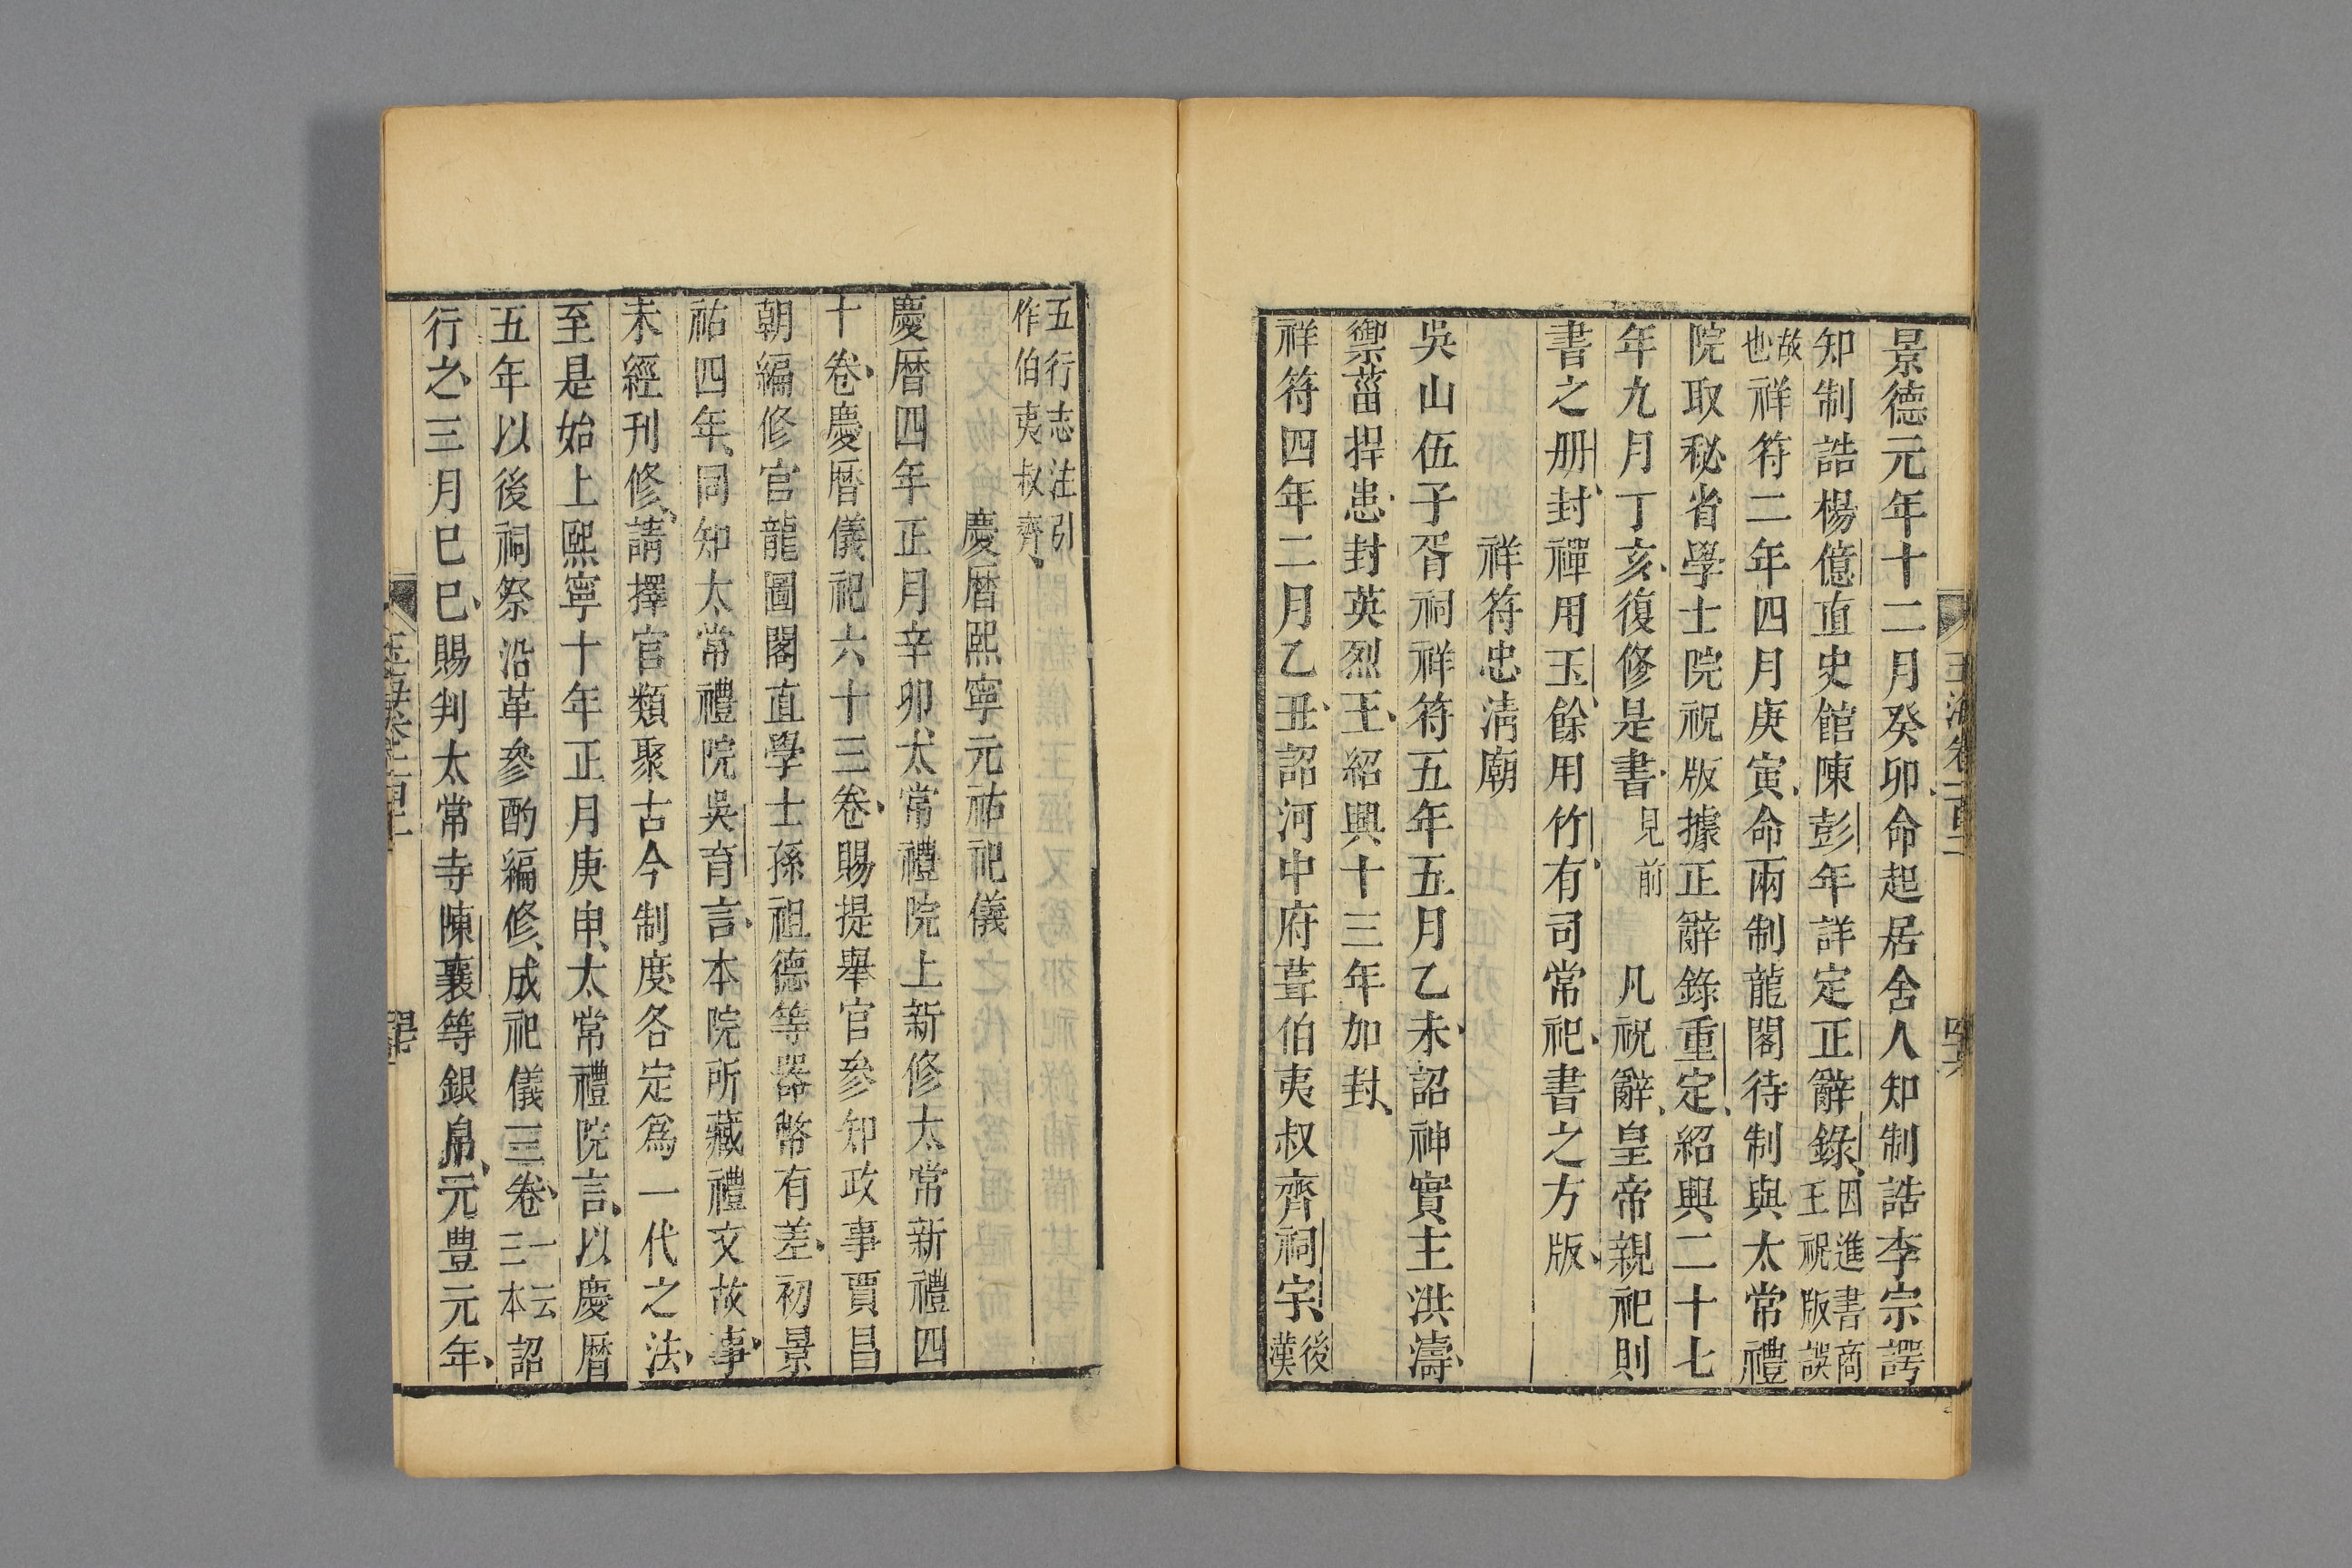 景德元年十二月癸卯命起居舍人知制誥李宗諤
知制誥楊億直史館陳彭年詳定正辭錄因進書商王祝版誤
故也祥符二年四月庚寅命兩制龍閣待制與太常禮
院取秘省學士院祝版據正辭錄重定紹興二十七
年九月丁亥復修是書見前 凡祝辭皇帝親祀則
書之册封禪用玉餘用竹有司常祀書之方版
祥符忠清廟
吳山伍子胥祠祥符五年五月乙未詔神實主洪濤
禦菑捍患封英烈王紹興十三年加封
祥符四年二月乙丑詔河中府葺伯夷叔齊祠宇後漢
五行志注引作伯夷叔齊
慶曆熙寧元祐祀儀
慶曆四年正月辛卯太常禮院上新修太常新禮四
十卷慶曆儀祀六十三卷賜提舉官參知政事賈昌
朝編修官龍圖閣直學士孫祖德等器幣有差初景
祐四年同知太常禮院吳育言本院所藏禮文故事
未經刊修請擇官類聚古今制度各定爲一代之法
至是始上熙寧十年正月庚申太常禮院言以慶曆
五年以後祠祭沿革參酌編修成祀儀三卷一云三本詔
行之三月巳巳賜判太常寺陳襄等銀帛元豊元年